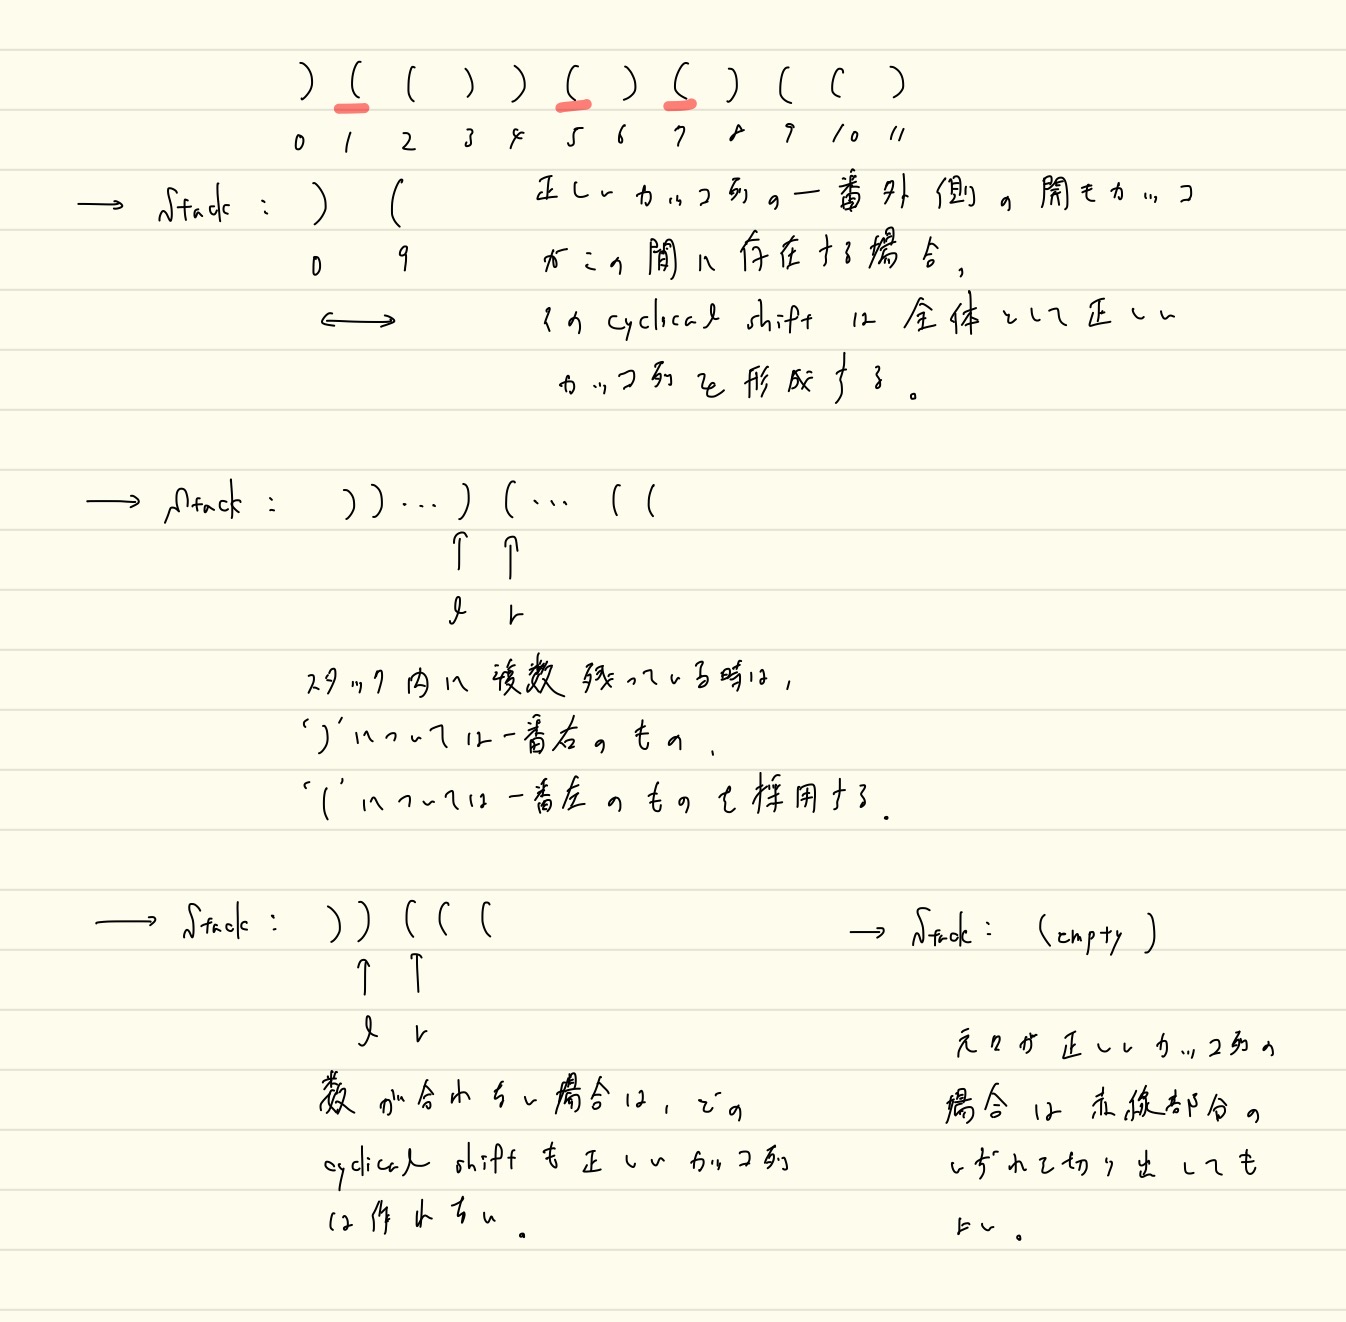 ) ( ( ) ) ( ) ( ) ( ( )
0 1 2 3 4 5 6 7 8 9 10 11
→ stack : ) (
0 9
正しいカッコ列の一番外側の開きカッコ
がこの間に存在する場合,
その cyclical shift は全体として正しい
カッコ列を形成する。
→ stack : ) ) ... ) ( ... ( (
↑ ↑
l r
スタック内に複数残っている時は,
‘)’については一番右のもの,
‘(’については一番左のものを採用する.
→ stack : ) ) ( ( (
↑ ↑
l r
数が合わない場合は, どの
cyclical shift も正しいカッコ列
は作れない。
→ stack : (empty)
元々が正しいカッコ列の
場合は赤線部分の
いずれで切り出しても
よい。